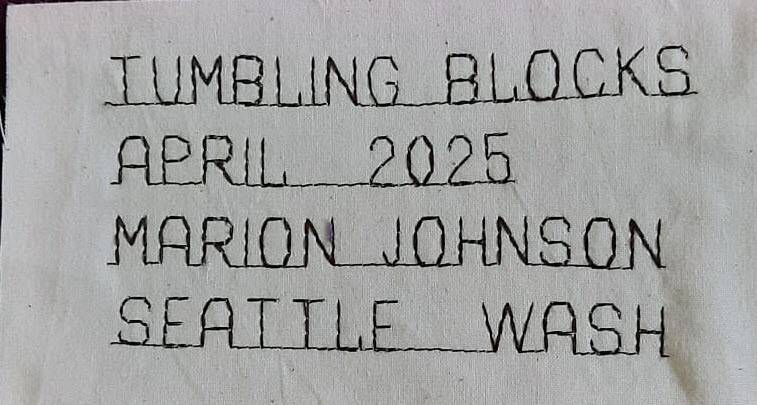 TUMBLING BLOCKS
APRIL 2025
MARION JOHNSON
SEATTLE WASH